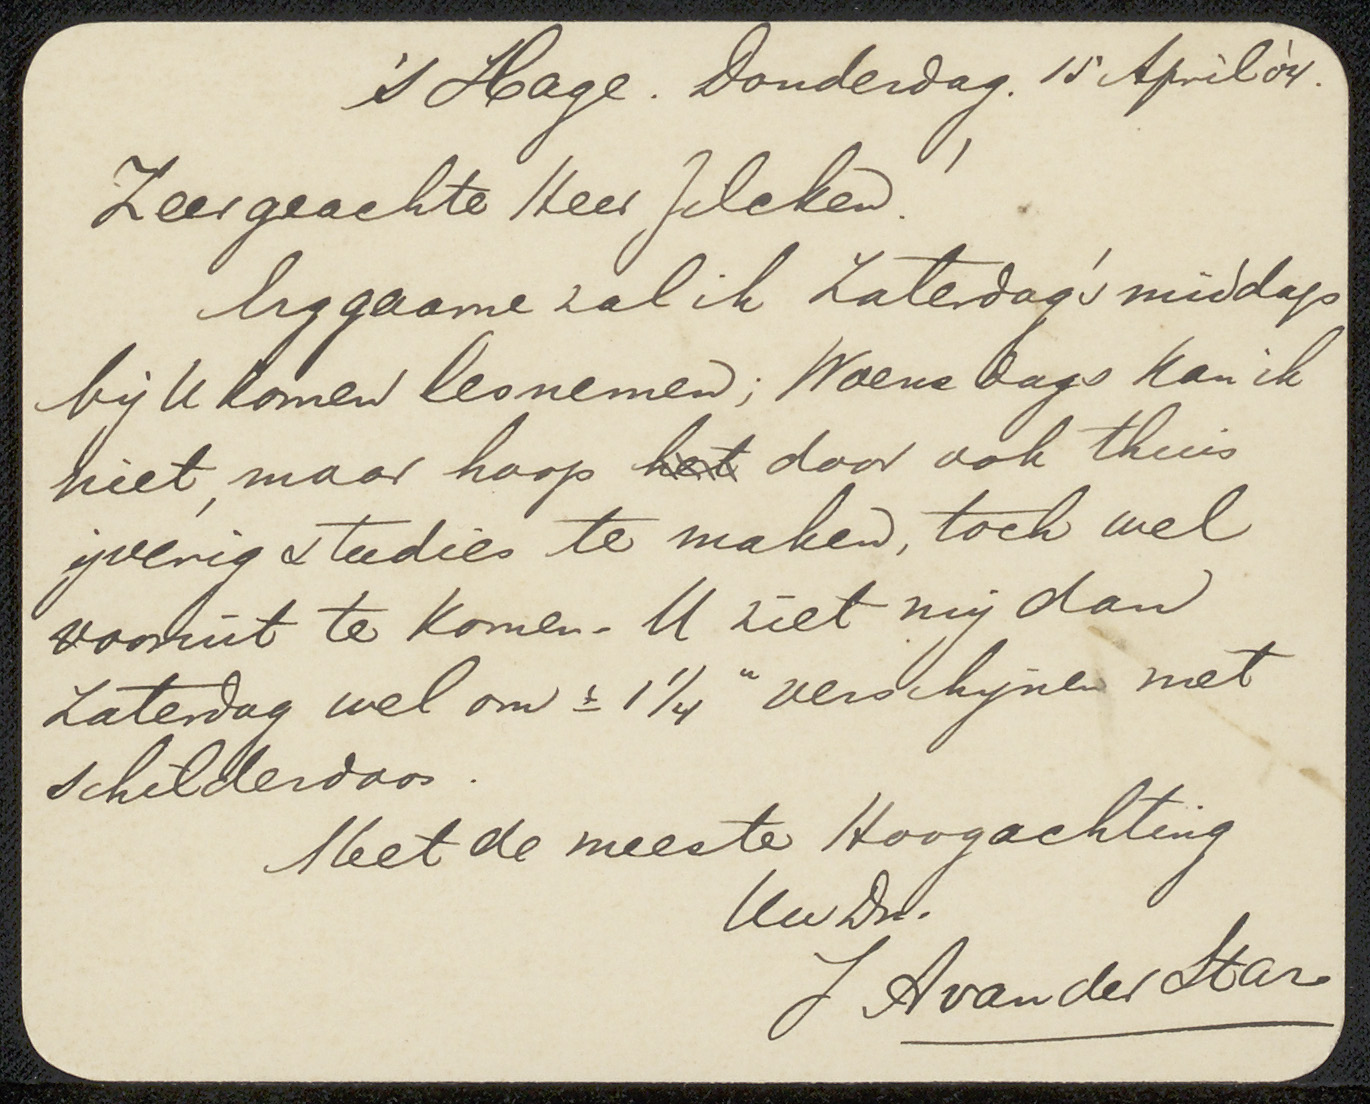 's Hage. Donderdag. 15 April '04.
Zeer geachte Heer Zilcken!
Erg gaarne zal ik Zaterdag's middags
bij U komen lesnemen; Woensdags kan ik
niet, maar hoop het door ook thuis
ijverig studies te maken, toch wel
vooruit te komen. U ziet mij dan
Zaterdag wel om ± 1 1/4 " verschijnen met
schilderdoos.
Met de meeste Hoogachting
Uw Dr.
J A van der Star